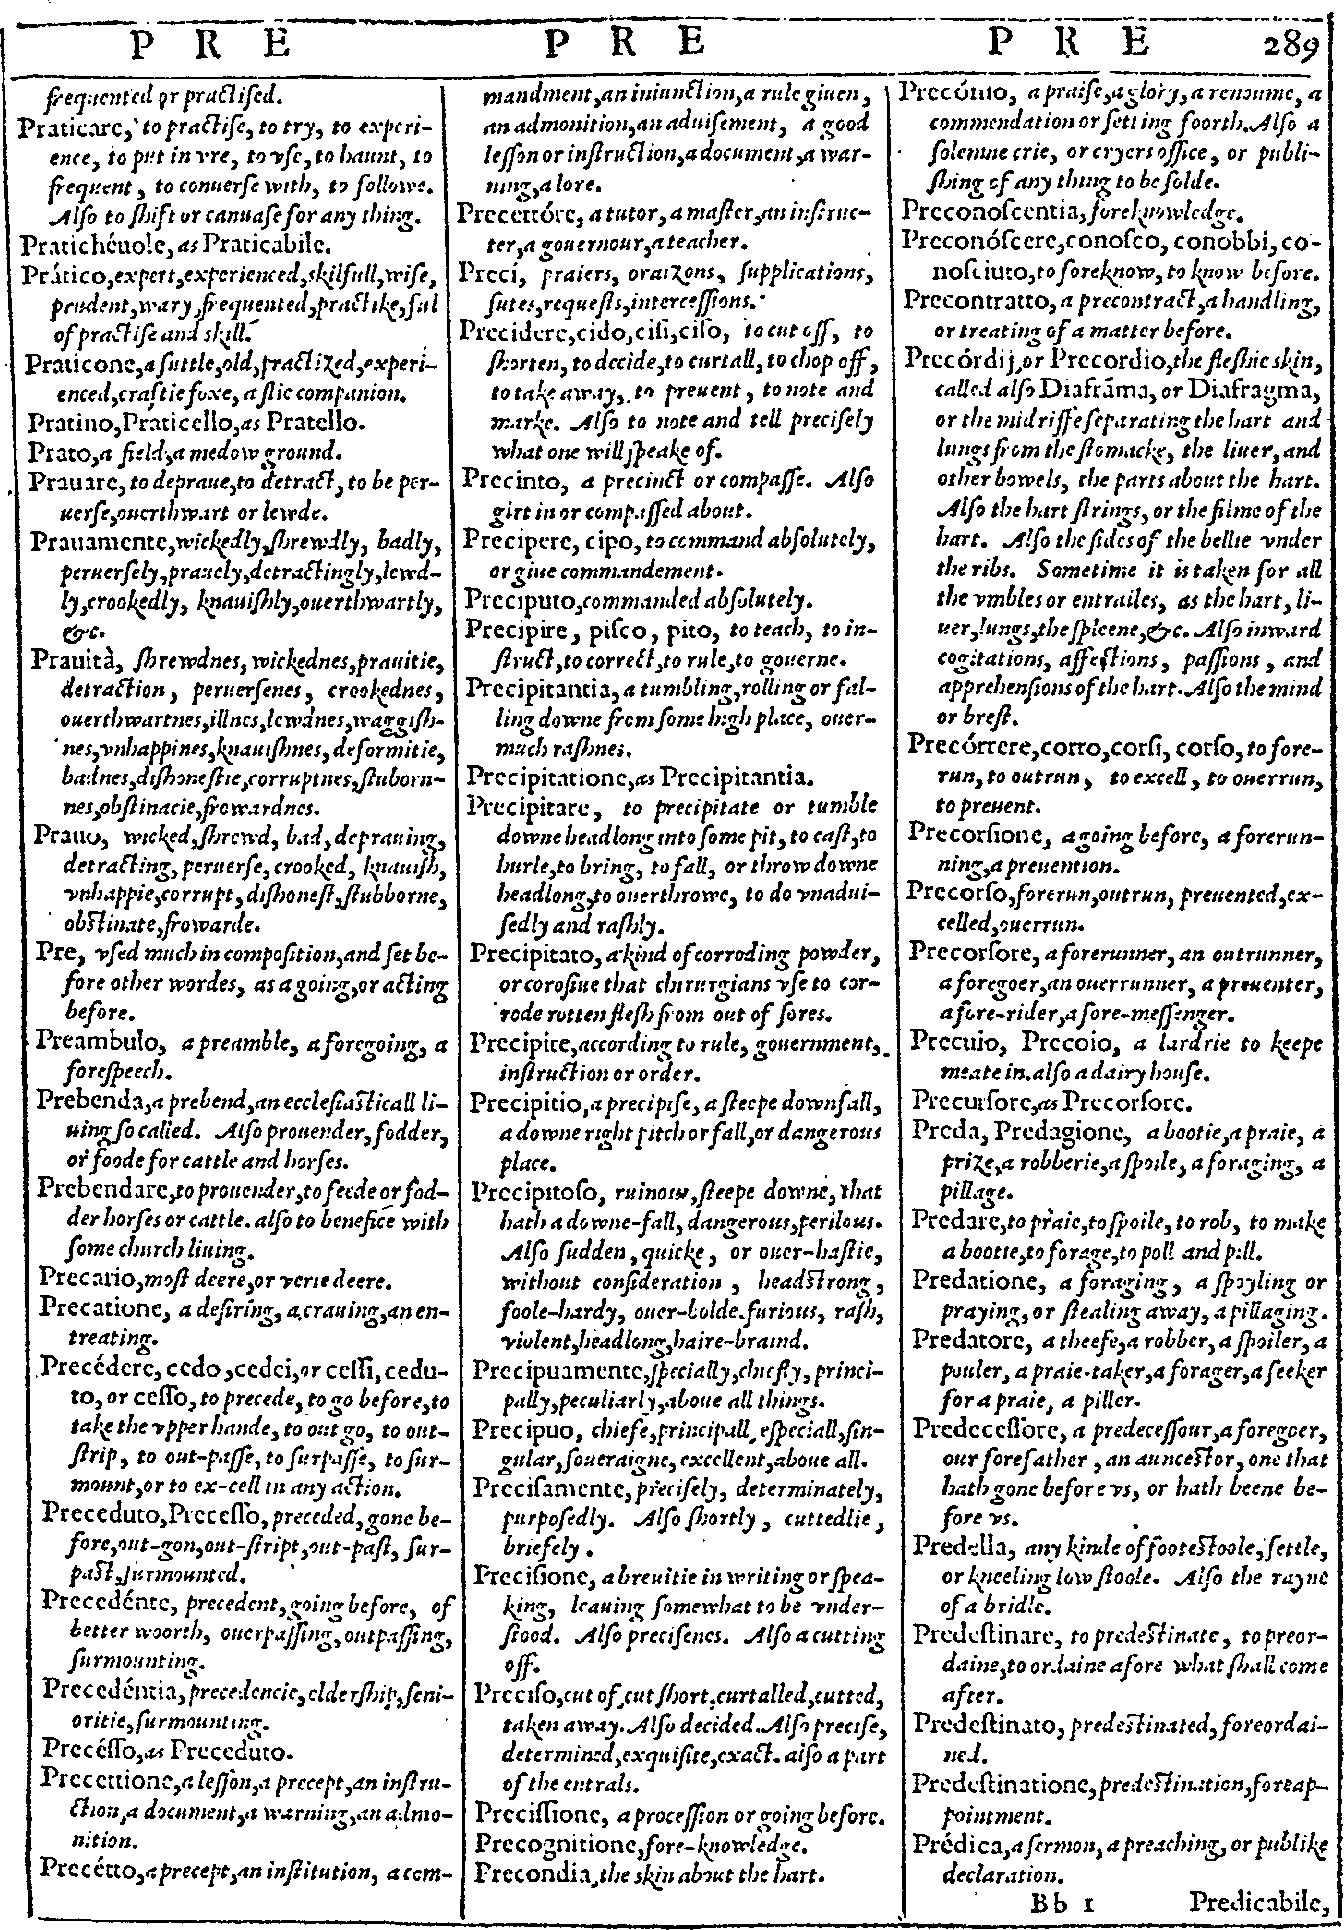 P R E P R E P R E 289
frequented or practised.
Praticare, to practise, to try, to experi-
ence, to put in vre, to vse, to haunt, to
frequent, to conuerse with, to follow.
Also to shift or canuase for any thing.
Pratichéuole, as Praticabile.
Prático, expert, experienced, skilfull, wise,
prudent, wary, frequented, practike, ful
of practise and skill.
Praticone, a suttle, old, practized, experi-
enced, craftie foxe, a slie companion.
Pratino, Praticello, as Pratello.
Prato, a field, a medow ground.
Prauare, to depraue, to detract, to be per-
uerse, ouerthwart or lewde.
Prauamente, wickedly, shrewdly, badly,
peruersely, prauely, detractingly, lewd-
ly, crookedly, knauishly, ouerthwartly,
&c.
Prauità, shrewdnes, wickednes, prauitie,
detraction, peruersenes, crookednes,
ouerthwartnes, illnes, lewdnes, waggish-
nes, vnhappines, knauishnes, deformitie,
badnes, dishonestie, corruptnes, stuborn-
nes, obstinacie, frowardnes.
Prauo, wicked, shrewd, bad, deprauing,
detracting, peruerse, crooked, knauish,
vnhappie, corrupt, dishonest, stubborne,
obstinate, frowarde.
Pre, vsed much in composition, and set be-
fore other wordes, as a going, or acting
before.
Preambulo, a preamble, a foregoing, a
forespeech.
Prebenda, a prebend, an ecclesiasticall li-
uing so called. Also prouender, fodder,
or foode for cattle and horses.
Prebendare, to prouender, to feede or fod-
der horses or cattle. also to benefice with
some church liuing.
Precario, most deere, or verie deere.
Precatione, a desiring, a crauing, an en-
treating.
Precédere, cedo, cedei, or cessi, cedu-
to, or cesso, to precede, to go before, to
take the vpper hande, to out go, to out-
strip, to out-passe, to surpasse, to sur-
mount, or to ex-cell in any action.
Preceduto, Precesso, preceded, gone be-
fore, out-gon, out-stript, out-past, sur-
past, surmounted.
Precedénte, precedent, going before, of
better woorth, ouerpassing, outpassing,
surmounting.
Precedéntia, precedencie, eldership, seni-
oritie, surmounting.
Precésso, as Preceduto.
Precettione, a lesson, a precept, an instru-
ction, a document, a warning, an admo-
nition.
Precétto, a precept, an institution, a com-
mandment, an iniunction, a rule giuen,
an admonition, an aduisement, a good
lesson or instruction, a document, a war-
ning, a lore.
Precettóre, a tutor, a master, an instruc-
ter, a gouernour, a teacher.
Preci, praiers, oraizons, supplications,
sutes, requests, intercessions.
Precidere, cido, cisi, ciso, to cut off, to
shorten, to decide, to curtall, to chop off,
to take away, to preuent, to note and
marke. Also to note and tell precisely
what one will speake of.
Precinto, a precinct or compasse. Also
girt in or compassed about.
Precipere, cipo, to command absolutely,
or giue commandement.
Preciputo, commanded absolutely.
Precipire, pisco, pito, to teach, to in-
struct, to correct, to rule, to gouerne.
Precipitantia, a tumbling, rolling or fal-
ling downe from some high place, ouer-
much rashnes.
Precipitatione, as Precipitantia.
Precipitare, to precipitate or tumble
downe headlong into some pit, to cast, to
hurle, to bring, to fall, or throw downe
headlong, to ouerthrowe, to do vnadui-
sedly and rashly.
Precipitato, a kind of corroding powder,
or corosiue that chirurgians vse to cor-
rode rotten flesh from out of sores.
Precipite, according to rule, gouernment,
instruction or order.
Precipitio, a precipise, a steepe downfall,
a downe right pitch or fall, or dangerous
place.
Precipitoso, ruinous, steepe downe, that
hath a downe-fall, dangerous, perilous.
Also sudden, quicke, or ouer-hastie,
without consideration, headstrong,
foole-hardy, ouer-bolde, furious, rash,
violent, headlong, haire-braind.
Precipuamente, specially, chiefly, princi-
pally, peculiarly, aboue all things.
Precipuo, chiefe, principall, especiall, sin-
gular, soueraigne, excellent, aboue all.
Precisamente, precisely, determinately,
purposedly. Also shortly, cuttedlie,
briefely.
Precisione, a breuitie in writing or spea-
king, leauing somewhat to be vnder-
stood. Also precisenes. Also a cutting
off.
Preciso, cut of, cut short, curtalled, cutted,
taken away. Also decided. Also precise,
determined, exquisite, exact. also a part
of the entrals.
Precissione, a procession or going before.
Precognitione, fore-knowledge.
Precondia, the skin about the hart.
Precónio, a praise, a glory, a renoume, a
commendation or setting foorth. Also a
solemne crie, or cryers office, or publi-
shing of any thing to be solde.
Preconoscentia, foreknowledge.
Preconóscere, conosco, conobbi, co-
nosciuto, to foreknow, to know before.
Precontratto, a precontract, a handling,
or treating of a matter before.
Precórdij, or Precordio, the fleshie skin,
called also Diafráma, or Diafragma,
or the midriffe separating the hart and
lungs from the stomacke, the liuer, and
other bowels, the parts about the hart.
Also the hart strings, or the filme of the
hart. Also the sides of the bellie vnder
the ribs. Sometime it is taken for all
the vmbles or entrailes, as the hart, li-
uer, lungs, the spleene, &c. Also inward
cogitations, affections, passions, and
apprehensions of the hart. Also the mind
or brest.
Precórrere, corro, corsi, corso, to fore-
run, to outrun, to excell, to ouerrun,
to preuent.
Precorsione, a going before, a forerun-
ning, a preuention.
Precorso, forerun, outrun, preuented, ex-
celled, ouerrun.
Precorsore, a forerunner, an outrunner,
a foregoer, an ouerrunner, a preuenter,
a fore-rider, a fore-messenger.
Precuio, Precoio, a lardrie to keepe
meate in. also a dairy house.
Precursore, as Precorsore.
Preda, Predagione, a bootie, a praie, a
prize, a robberie, a spoile, a foraging, a
pillage.
Predare, to praie, to spoile, to rob, to make
a bootie, to forage, to poll and pill.
Predatione, a foraging, a spoyling or
praying, or stealing away, a pillaging.
Predatore, a theefe, a robber, a spoiler, a
pouler, a praie-taker, a forager, a seeker
for a praie, a piller.
Predecessore, a predecessour, a foregoer,
our forefather, an auncestor, one that
hath gone before vs, or hath beene be-
fore vs.
Predella, any kinde of footestoole, settle,
or kneeling low stoole. Also the rayne
of a bridle.
Predestinare, to predestinate, to preor-
daine, to ordaine afore what shall come
after.
Predestinato, predestinated, foreordai-
ned.
Predestinatione, predestination, foreap-
pointment.
Prédica, a sermon, a preaching, or publike
declaration.
Bb 1 Predicabile,